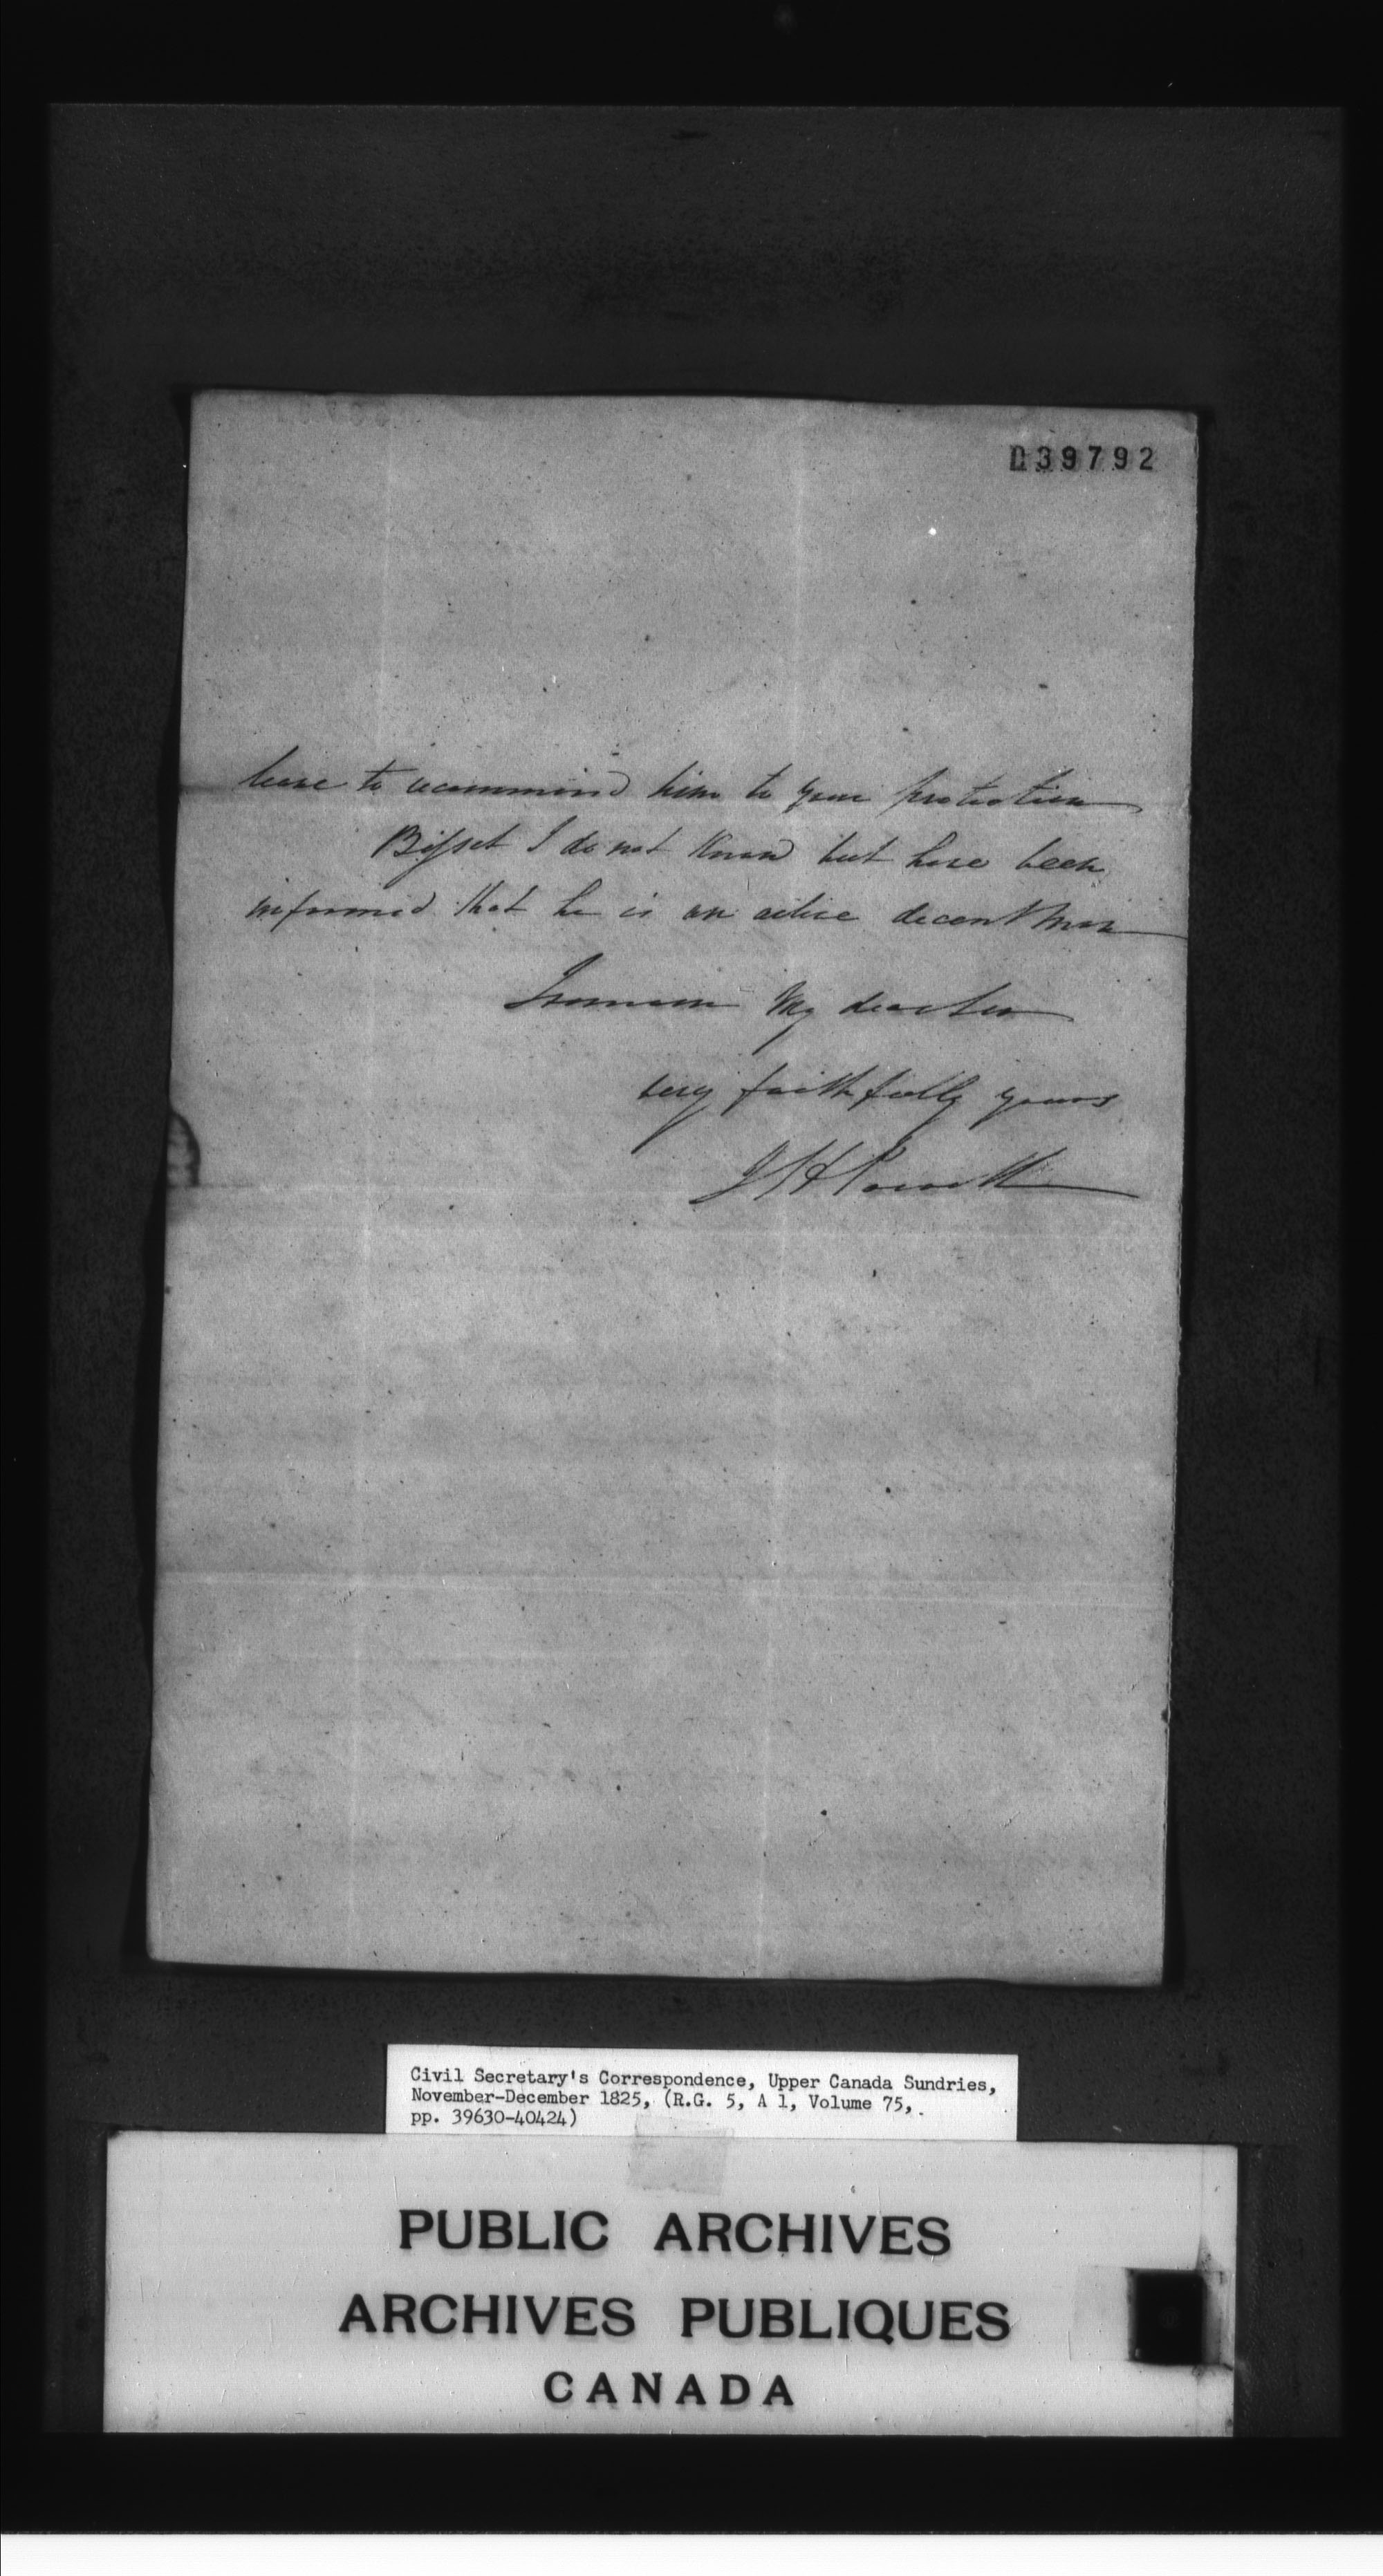 D39792
leave to recommend him to your protection
Bisset I do not know but have been
informed that he is an active decent man
I remain My dear Sir
very faithfully yours
Powell
Civil Secretary's Correspondence, Upper Canada Sundries,
November-December 1825, (R.G. 5, A 1, Volume 75,
pp. 39630-40424)
PUBLIC ARCHIVES
ARCHIVES PUBLIQUES
CANADA